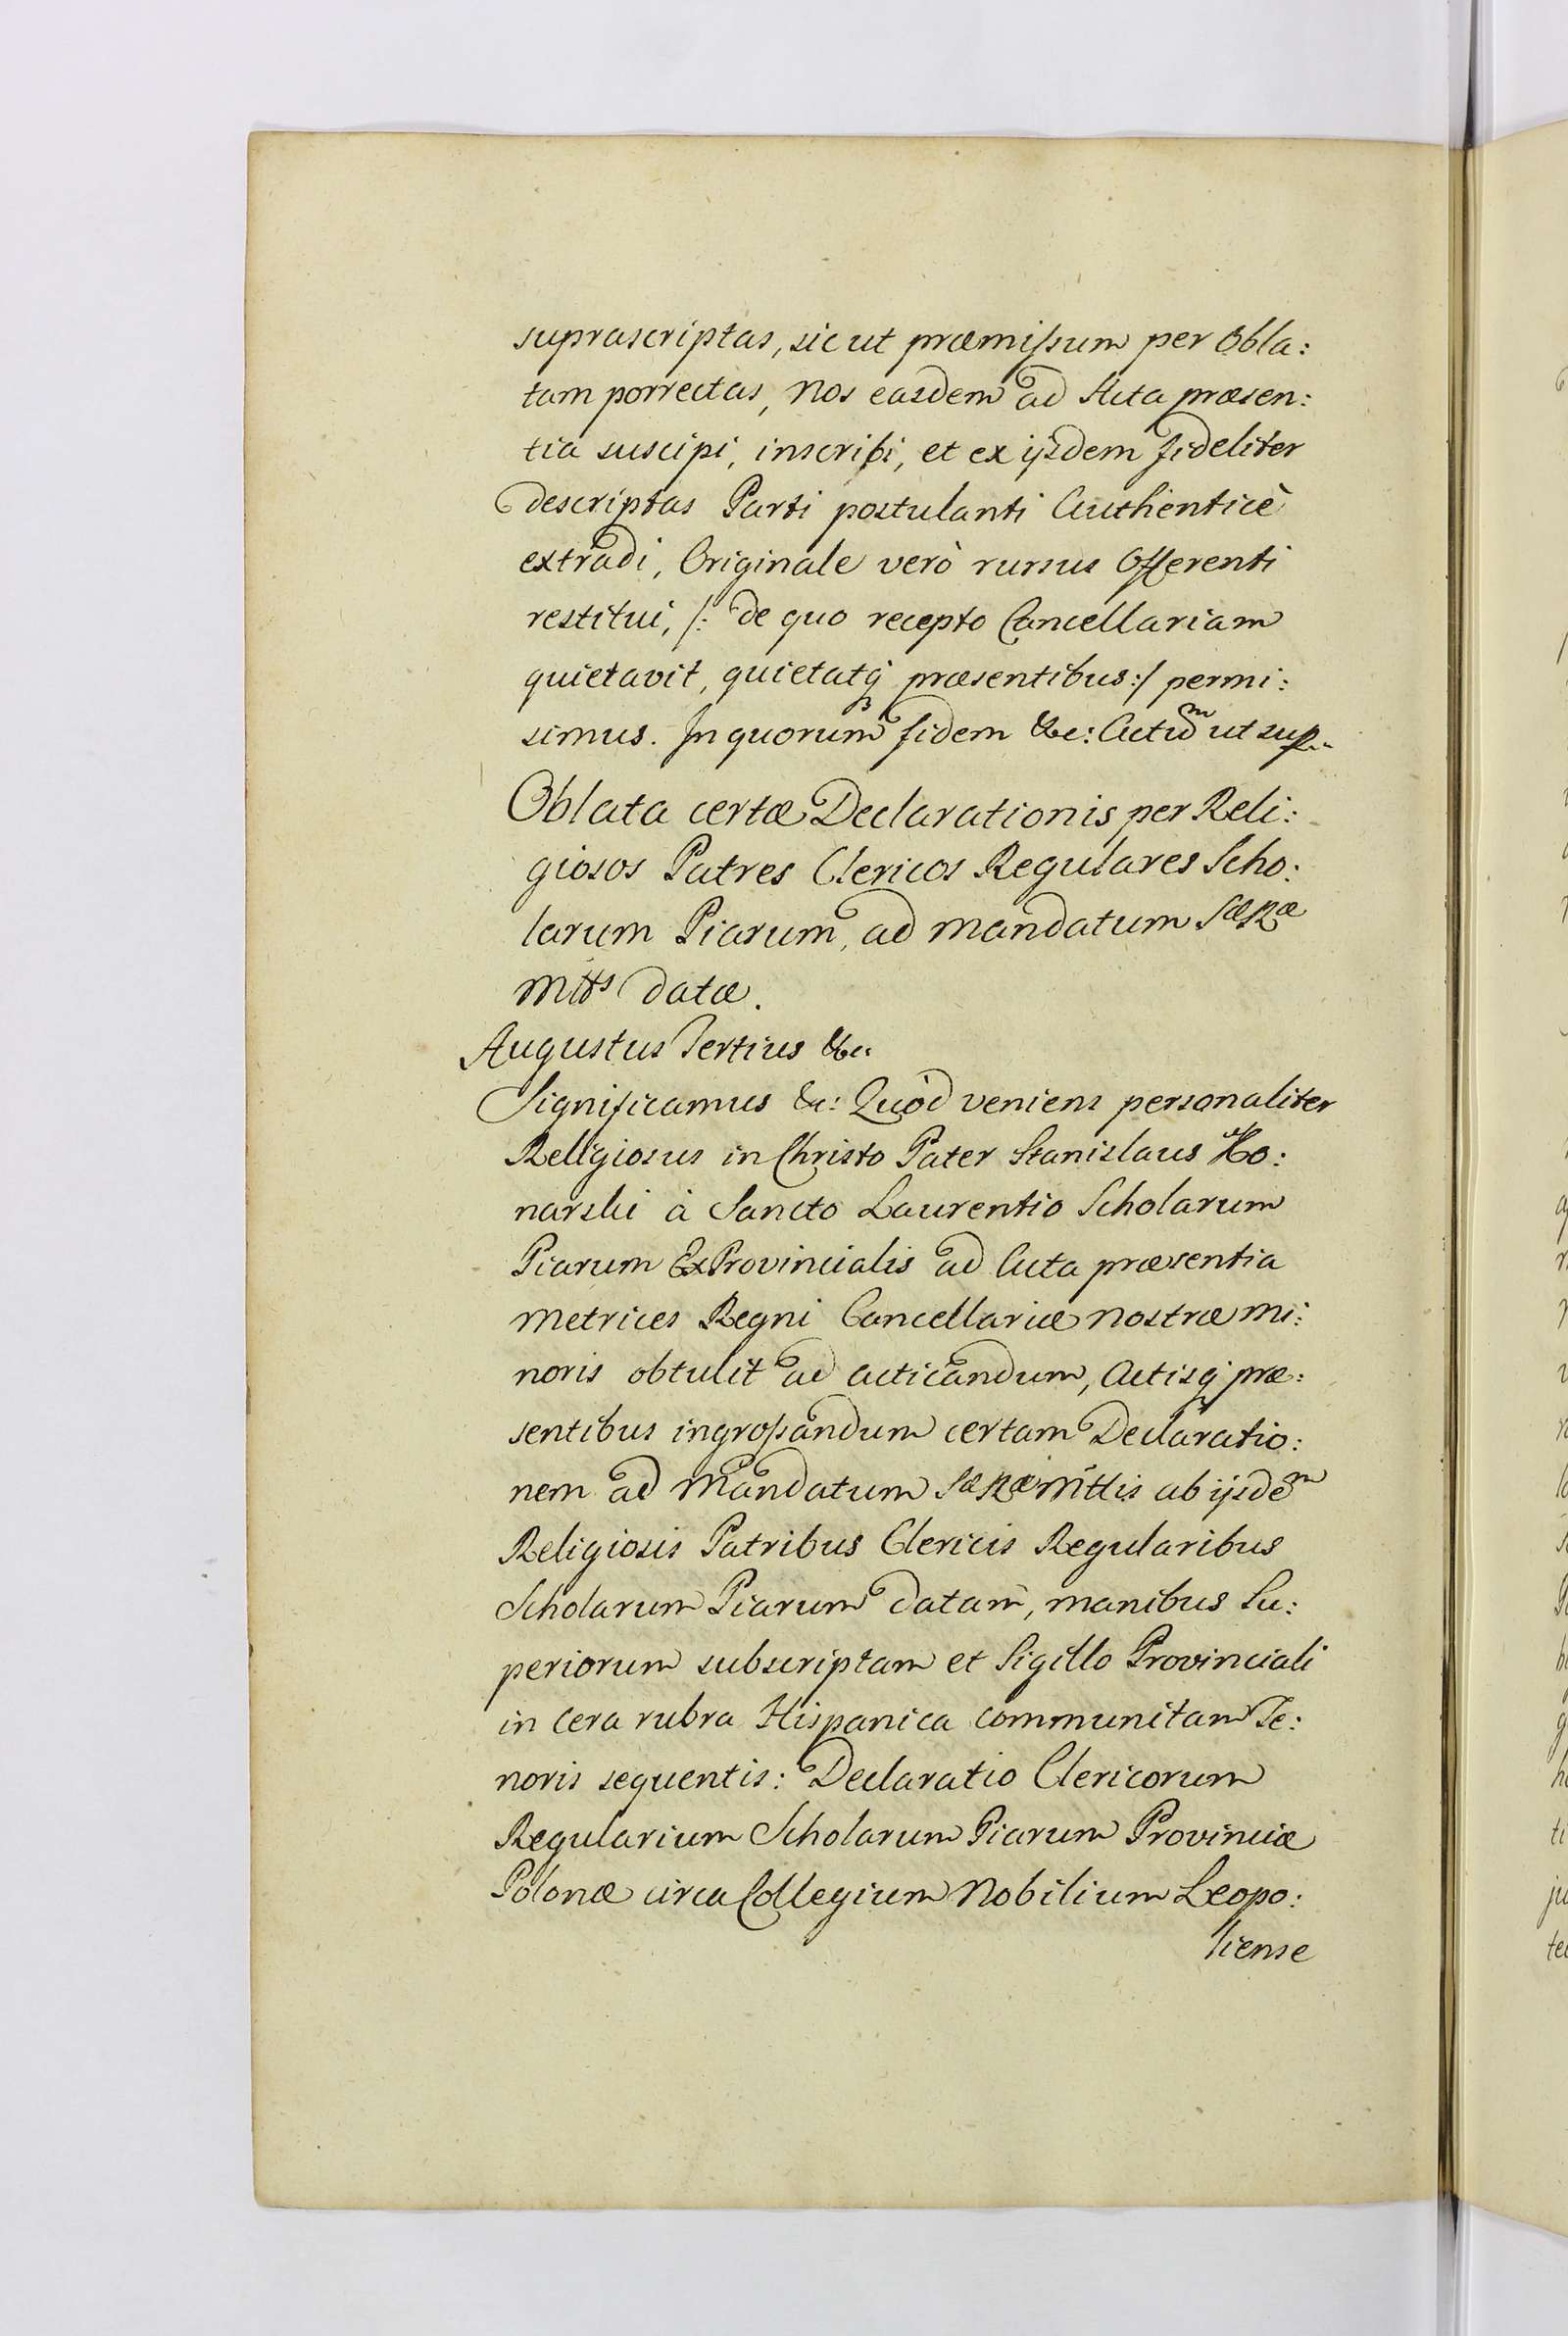 suprascriptas, sicut præmissum per Obla:
tam porrectas, Nos easdem ad Acta præsen:
tia suscipi, inscribi, et ex ijsdem fideliter
descriptas Parti postulanti Authenticè
extradi, Originale verò rursus Offerenti
restitui, /: de quo recepto Cancellariam
quietavit, quietatq́ præsentibus:/ permi:
simus. In quorum fidem &c: Actũm ut sup..
Oblata certæ Declarationis per Reli:
giosos Patres Clericos Regulares Scho:
larum Piarum, ad Mandatum Sæ Ræ
Mttis datæ.
Augustus Tertius &c:
Significamus &c: Quòd veniens personaliter
Religiosus in Christo Pater Stanislaus Ko:
narski à Sancto Laurentio Scholarum
Piarum ExProvincialis ad Acta præsentia
Metrices Regni Cancellariæ Nostræ Mi:
noris obtulit ad acticandum, Actisq́ præ:
sentibus ingrossandum certam Declaratio:
nem ad Mandatum Sæ Ræ Mttis ab ijsdem
Religiosis Patribus Clericis Regularibus
Scholarum Piarum datam, manibus Su:
periorum subscriptam et Sigillo Provinciali
in Cera rubra Hispanica communitam Te:
noris sequentis: Declaratio Clericorum
Regularium Scholarum Piarum Provinciæ
Polonæ circa Collegium Nobilium Leopo:
liense